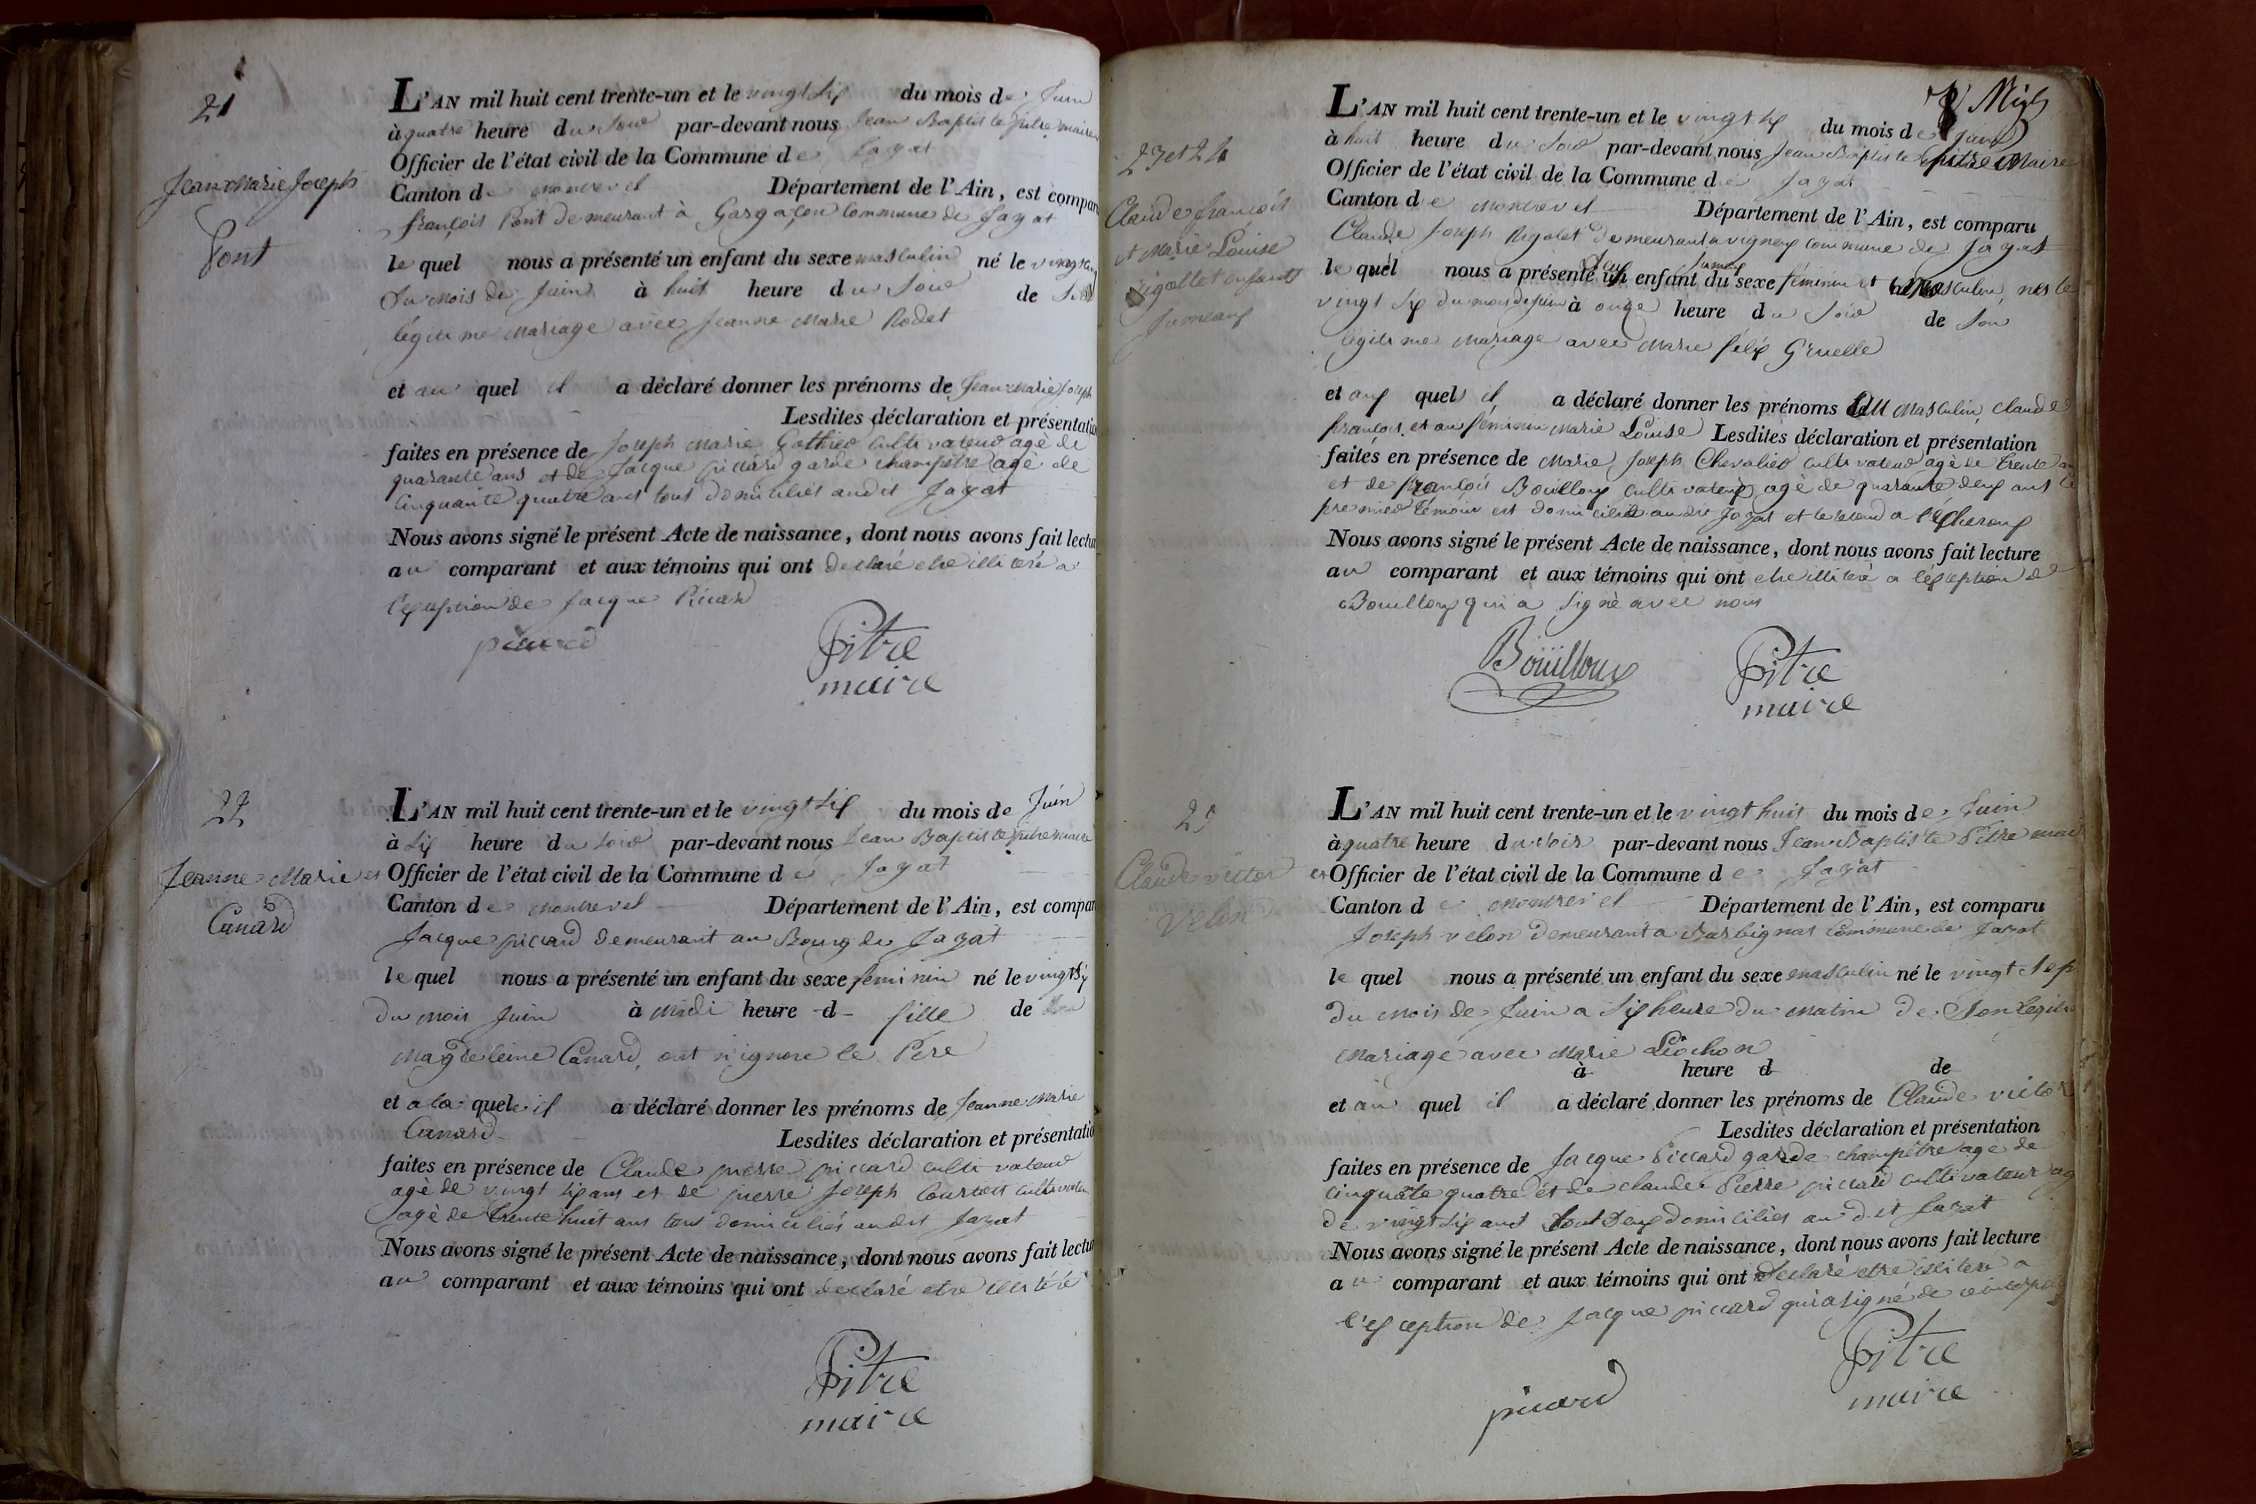 21
Jean Marie Joseph
Pont
L'AN mil huit cent trente-un et le vingt six du mois de Juin
à quatre heure du Soir par-devant nous Jean Baptiste pitre maire
Officier de l'état civil de la Commune de Jayat
Canton de montrevel Département de l'Ain, est compar
françois Pont demeurant à Gargaçon Commune de Jayat
le quel nous a présenté un enfant du sexe masculin né le vingt
Du mois de Juin à huit heure du Soir de Son
légitime mariage avec Jeanne Marie Rodet
et au quel il a déclaré donner les prénoms de Jean Marie Joseph
Lesdites déclaration et présentatio
faites en présence de Joseph Marie cultivateur agé de
quarante ans et de Jacque piccard garde champêtre agé de
Cinquante quatre ans tout domiciliés audit Jayat
Nous avons signé le présent Acte de naissance, dont nous avons fait lectu
au comparant et aux témoins qui ont declaré etre illiteré a
l'exseption de Jacque Picard
picard
Pitre
maire
22
Jeanne Marie
Canard
L'AN mil huit cent trente-un et le vingt six du mois de Juin
à six heure du soir par-devant nous Jean Baptiste pitre maire
Officier de l'état civil de la Commune de Jayat
Canton de montrevel Département de l'Ain, est compar
Jacque piccard demeurant au Bourg de Jayat
le quel nous a présenté un enfant du sexe feminin né le vingt six
Du mois Juin à midi heure d fille de
magdeleine Canard, ont n'ignore le Pére
et a la quele il a déclaré donner les prénoms de Jeanne Marie
Canard Lesdites déclaration et présentatio
faites en présence de Claude pierre piccard cultivateur
agé de vingt six ans et de pierre Joseph Courtois cultivateur
agé de trente huit ans tous domiciliés audit Jayat
Nous avons signé le présent Acte de naissance, dont nous avons fait lectu
au comparant et aux témoins qui ont déclaré etre
Pitre
maire
23 et 24
Claude françois
et Marie Louise
rigollet enfants
Jumeaux
L'AN mil huit cent trente-un et le vingt six du mois de Juin
à huit heure du Soir par-devant nous Jean Baptiste pitre Maire
Officier de l'état civil de la Commune de Jayat
Canton de montrevel Département de l'Ain, est comparu
Claude Joseph Rigolet demeurant a vigneux commune de Jayat
le quel nous a présenté enfant du sexe féminin et masculin, nés le
vingt six du mois de juin à onze heure du Soir de Son
légitime mariage avec Marie félix Gruelle
et aux quels il a déclaré donner les prénoms au masculin, claude
françois et au féminin Marie Louise Lesdites déclaration et présentation
faites en présence de Marie Joseph Chevalier cultivateur agé de trente
et de françois Bouilloux cultivateur agé de quarante deux ans le
premier témoin est domicilié audit Jayat et le second a
Nous avons signé le présent Acte de naissance, dont nous avons fait lecture
au comparant et aux témoins qui ont etre illiteré a l'éxseption de
Bouilloux qui a signé avec nous
Boüilloux
Pitre
maire
25
Claude victor
Velon
L'AN mil huit cent trente-un et le vingt huit du mois de Juin
à quatre heure du soir par-devant nous Jean Baptiste Pitre mair
Officier de l'état civil de la Commune de Jayat
Canton de montrevel Département de l'Ain, est comparu
Joseph velon demeurant a Barbignat commune de Jayat
le quel nous a présenté un enfant du sexe masculin né le vingt sep
Du mois de Juin a six heure du matin de Son legitim
mariage avec Marie Liochon
à heure d de
et au quel il a déclaré donner les prénoms de Claude victor
Lesdites déclaration et présentation
faites en présence de Jacque Piccard garde champêtre agé de
cinquate quatre et de claude Pierre piccard cultivateur ag
de vingt six ans tout Deux domiciliés au dit Jayat
Nous avons signé le présent Acte de naissance, dont nous avons fait lecture
au comparant et aux témoins qui ont declaré etre illiteré a
l'exception de Jacque piccard qui a signé de ce
picard
Pitre
maire